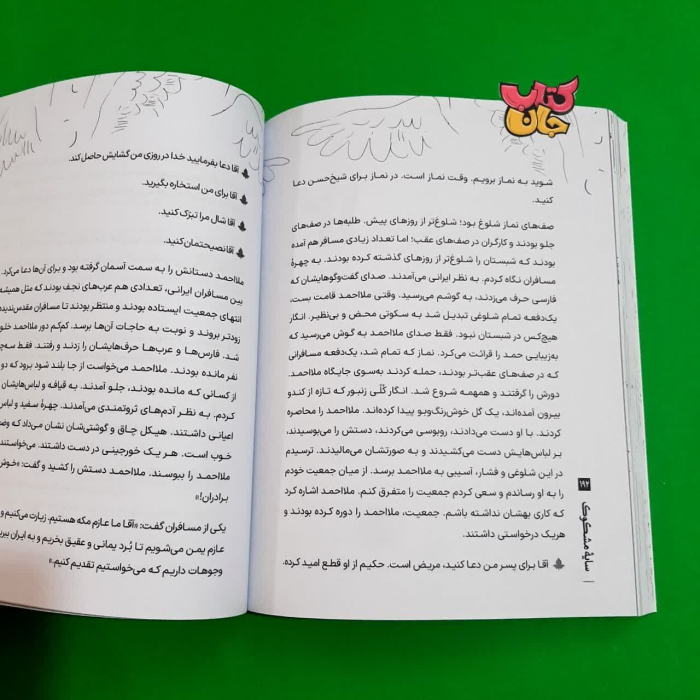 کتاب
جان
شوید به نماز برویم. وقت نماز است. در نماز برای شیخ‌حسن دعا
کنید.
صف‌های نماز شلوغ بود؛ شلوغ‌تر از روزهای پیش. طلبه‌ها در صف‌های
جلو بودند و کارگران در صف‌های عقب؛ اما تعداد زیادی مسافر هم آمده
بودند که شبستان را شلوغ‌تر از روزهای گذشته کرده بودند. به چهرهٔ
مسافران نگاه کردم. به نظر ایرانی می‌آمدند. صدای گفت‌وگوهایشان که
فارسی حرف می‌زدند، به گوشم می‌رسید. وقتی ملااحمد قامت بست،
یک‌دفعه تمام شلوغی تبدیل شد به سکوتی محض و بی‌نظیر. انگار
هیچ‌کس در شبستان نبود. فقط صدای ملااحمد به گوش می‌رسید که
به‌زیبایی حمد را قرائت می‌کرد. نماز که تمام شد، یک‌دفعه مسافرانی
که در صف‌های عقب‌تر بودند، حمله کردند به‌سوی جایگاه ملااحمد.
دورش را گرفتند و همهمه شروع شد. انگار کُلّی زنبور که تازه از کندو
بیرون آمده‌اند، یک گل خوش‌رنگ‌وبو پیدا کرده‌اند. ملااحمد را محاصره
کردند. با او دست می‌دادند، روبوسی می‌کردند، دستش را می‌بوسیدند،
بر لباس‌هایش دست می‌کشیدند و به صورتشان می‌مالیدند. ترسیدم
در این شلوغی و فشار، آسیبی به ملااحمد برسد. از میان جمعیت خودم
را به او رساندم و سعی کردم جمعیت را متفرق کنم. ملااحمد اشاره کرد
که کاری بهشان نداشته باشم. جمعیت، ملااحمد را دوره کرده بودند و
هریک درخواستی داشتند.
آقا برای پسر من دعا کنید، مریض است. حکیم از او قطع امید کرده.
۱۹۲
سایهٔ مشکوک
آقا دعا بفرمایید خدا در روزی من گشایش حاصل کند.
آقا برای من استخاره بگیرید.
آقا شال مرا تبرّک کنید.
آقا نصیحتمان کنید.
ملااحمد دستانش را به سمت آسمان گرفته بود و برای آن‌ها دعا می‌کرد.
بین مسافران ایرانی، تعدادی هم عرب‌های نجف بودند که مثل همیشه
انتهای جمعیت ایستاده بودند و منتظر بودند تا مسافران مقدس‌ندیده
زودتر بروند و نوبت به حاجات آن‌ها برسد. کم‌کم دور ملااحمد خلو
شد. فارس‌ها و عرب‌ها حرف‌هایشان را زدند و رفتند. فقط سه‌چ
نفر مانده بودند. ملااحمد می‌خواست از جا بلند شود برود که دو
از کسانی که مانده بودند، جلو آمدند. به قیافه و لباس‌هایشان
کردم. به نظر آدم‌های ثروتمندی می‌آمدند. چهرهٔ سفید و لباس
اعیانی داشتند. هیکل چاق و گوشتی‌شان نشان می‌داد که وضع
خوب است. هر یک خورجینی در دست داشتند. می‌خواستند
ملااحمد را ببوسند. ملااحمد دستش را کشید و گفت: «خوش
برادران!»
یکی از مسافران گفت: «آقا ما عازم مکه هستیم. زیارت می‌کنیم و
عازم یمن می‌شویم تا بُرد یمانی و عقیق بخریم و به ایران ببر
وجوهات داریم که می‌خواستیم تقدیم کنیم.»